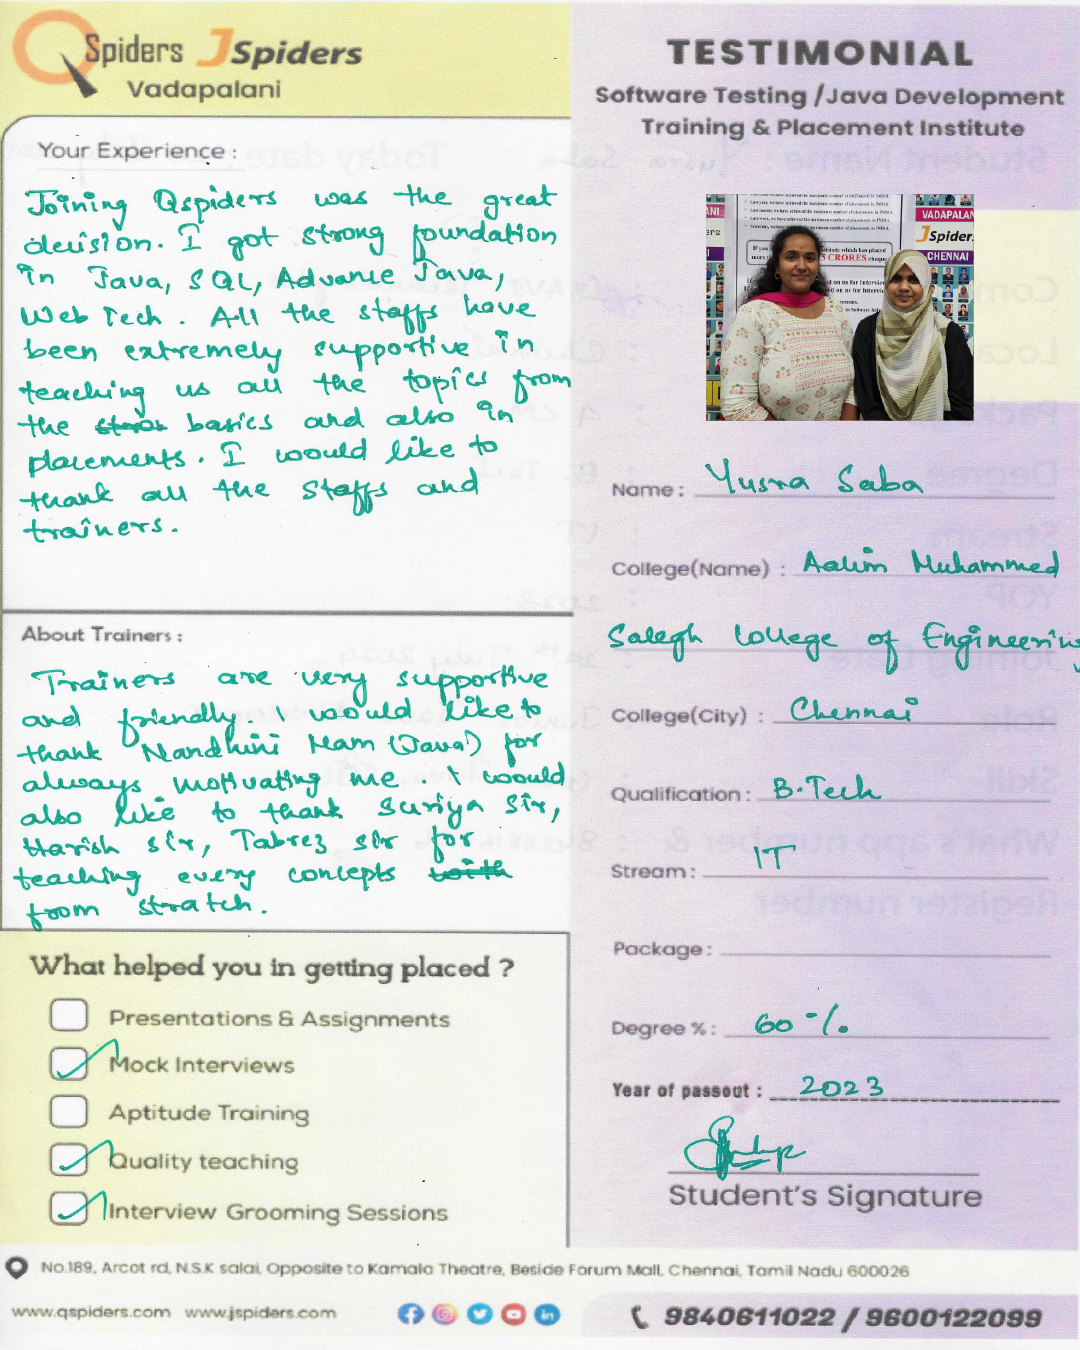 QSpiders JSpiders
Vadapalani
Your Experience :
Joining Qspiders was the great
decision. I got strong foundation
in Java, SQL, Advance Java,
Web Tech. All the staffs have
been extremely supportive in
teaching us all the topics from
the basics and also in
placements. I would like to
thank all the staffs and
trainers.
About Trainers :
Trainers are very supportive
and friendly. I would like to
thank Nandhini Mam (Java) for
always motivating me I would
also like to thank Suriya Sir,
Harish Sir, Tabrez sir for
teaching every concepts with
from stratch.
What helped you in getting placed ?
Presentations & Assignments
Mock Interviews
Aptitude Training
Quality teaching
Interview Grooming Sessions
TESTIMONIAL
Software Testing /Java Development
Training & Placement Institute
VADAPALAN
JSpider
CHENNAI
5 CRORES
Name : Yusra Saba
College(Name) : Aalim Muhammed
Salegh College of Engineering
College(City) : Chennai
Qualification : B.Tech
Stream : IT
Package :
Degree % : 60 %
Year of passout : 2023
Student's Signature
No.189, Arcot rd, N.S.K salai, Opposite to Kamala Theatre, Beside Forum Mall, Chennai, Tamil Nadu 600026
www.qspiders.com www.jspiders.com
9840611022 / 9600122099